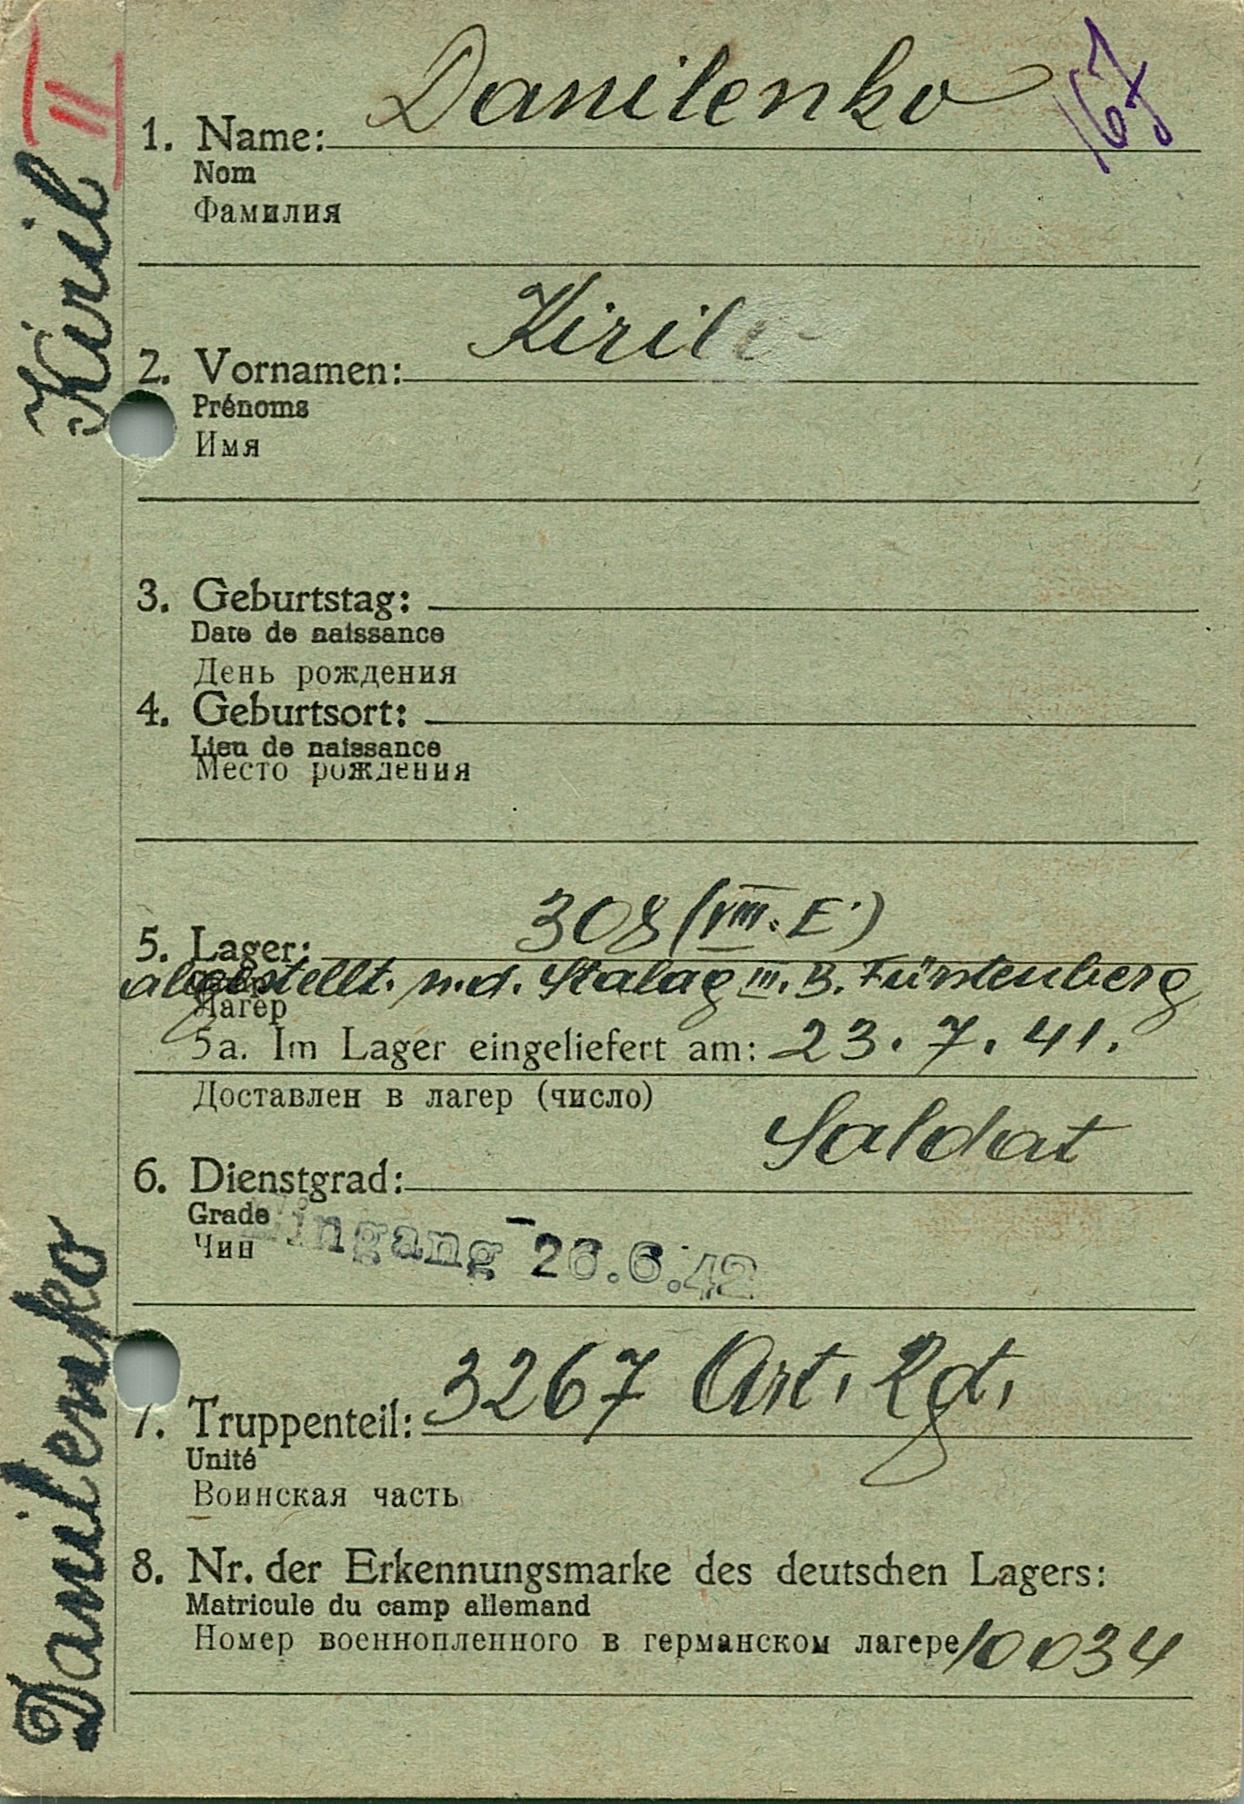 II
167
Danilenko
1. Name:
Nom
Фамилия
Kiril
2. Vornamen:
Prénoms
Имя
3. Geburtstag:
Date de naissance
День рождения
4. Geburtsort:
Lieu de naissance
Место рождения
5. Lager: 308 (VIII. E)
abgestellt. n.d. Stalag III. B. Fürstenberg
Лагер
5a. Im Lager eingeliefert am: 23. 7. 41.
Доставлен в лагер (число)
6. Dienstgrad: Soldat
Grade
Чин
Eingang - 26.6.42
7. Truppenteil: 3267 Art. Rgt.
Unité
Воинская часть
8. Nr. der Erkennungsmarke des deutschen Lagers:
Matricule du camp allemand
Номер военнопленного в германском лагере 10034
Danilenko Kiril